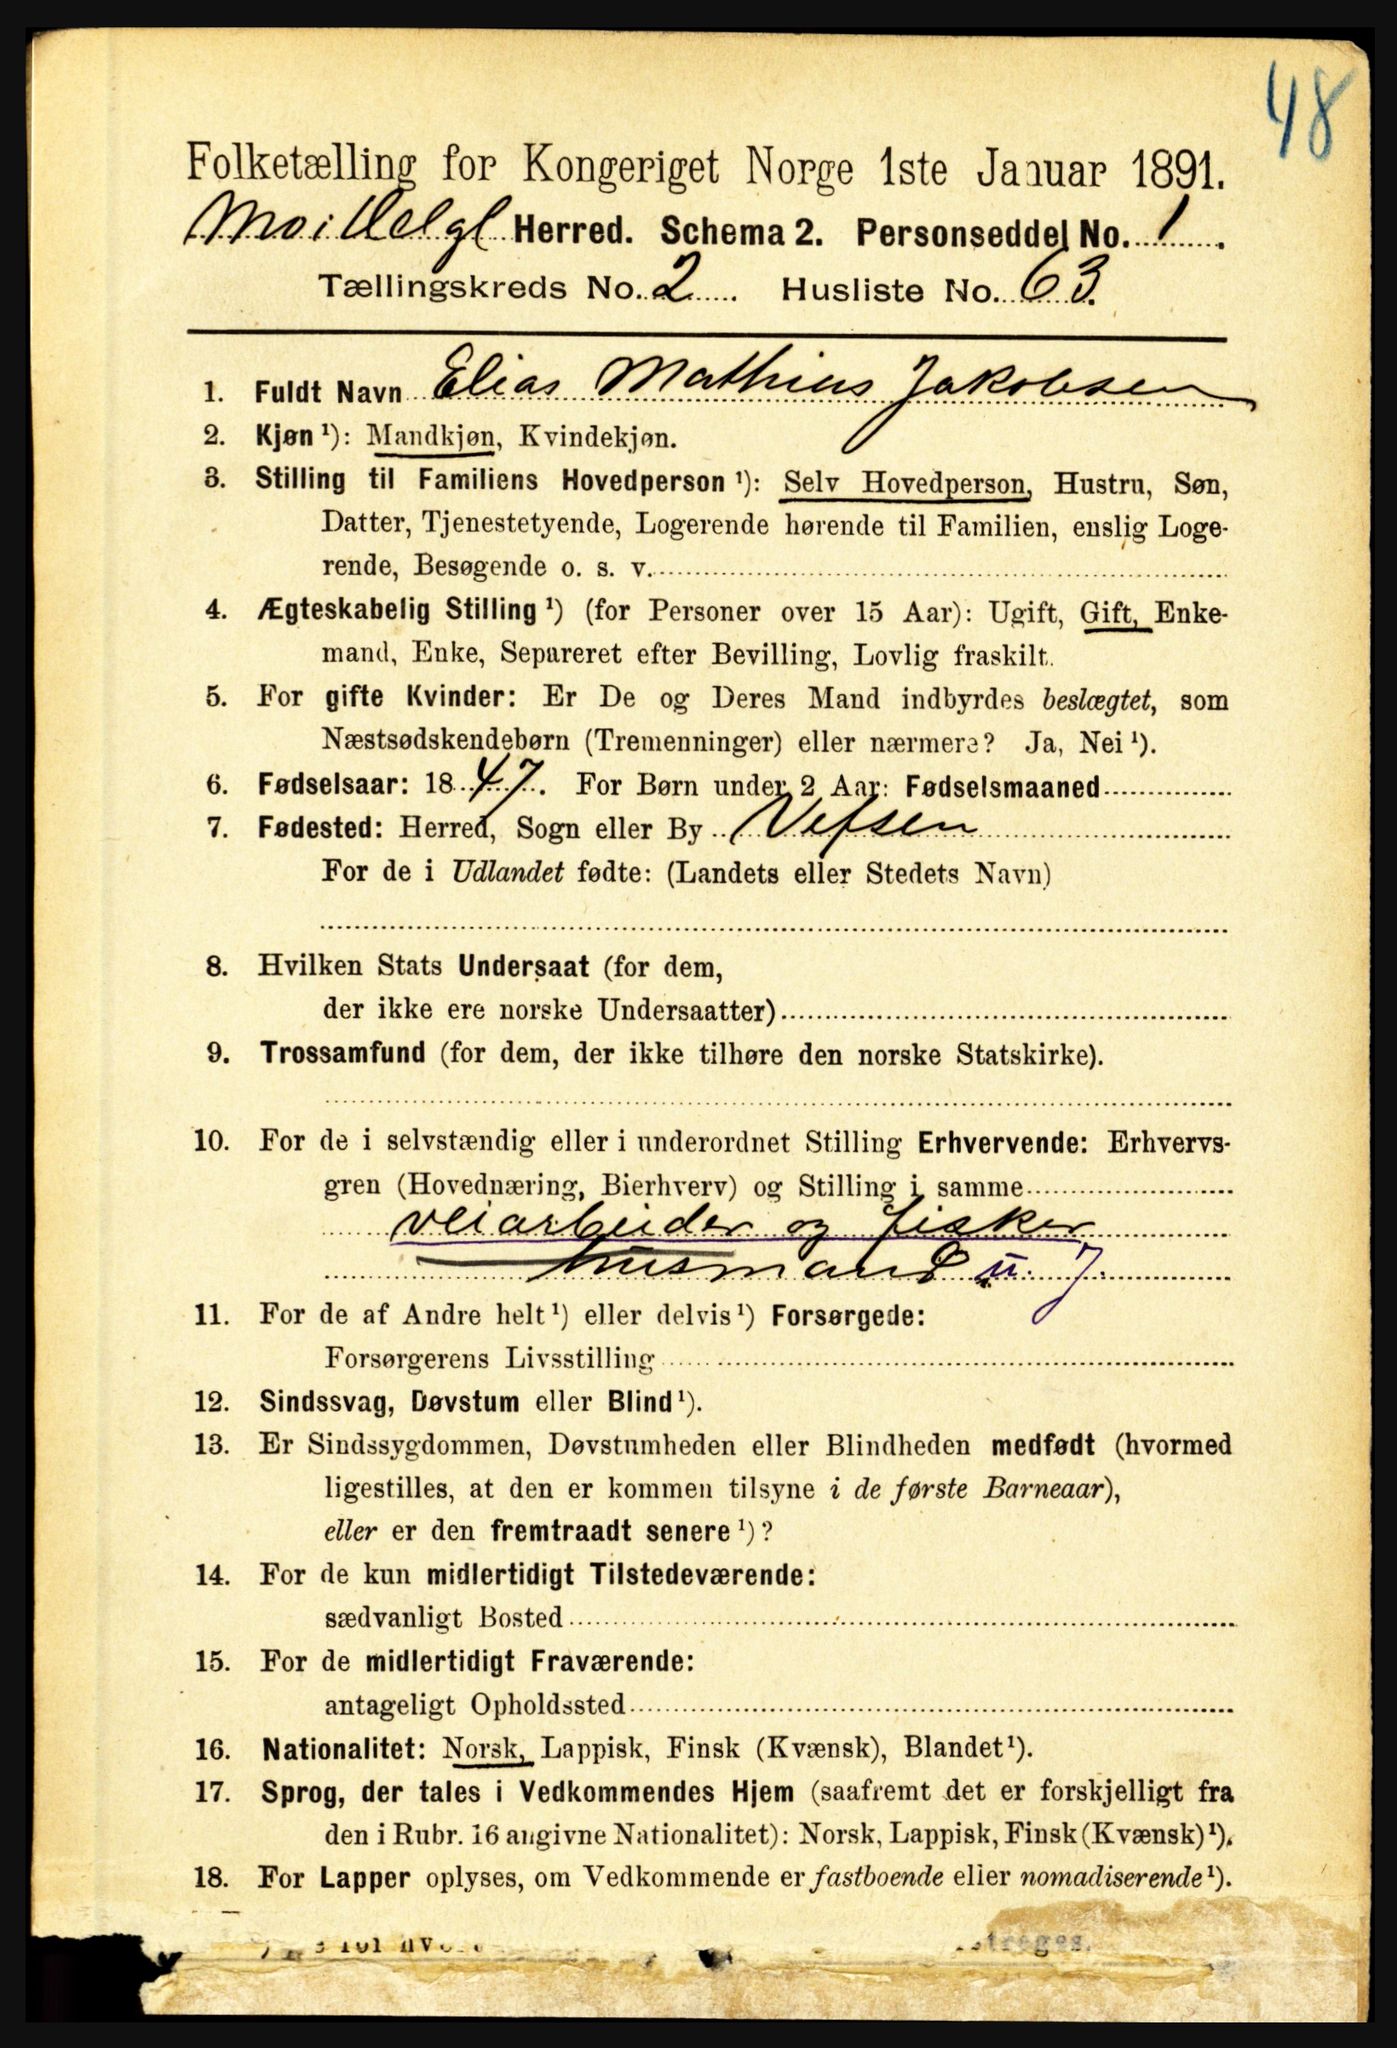 48
Folketælling for Kongeriget Norge 1ste Januar 1891.
Mo i Helgl Herred. Schema 2. Personseddel No. 1.
Tællingskreds No. 2. Husliste No. 63.
1. Fuldt Navn Elias Mathius Jakobsen
2. Kjøn ¹): Mandkjøn, Kvindekjøn.
3. Stilling til Familiens Hovedperson ¹): Selv Hovedperson, Hustru, Søn,
Datter, Tjenestetyende, Logerende hørende til Familien, enslig Loge-
rende, Besøgende o. s. v.
4. Ægteskabelig Stilling ¹) (for Personer over 15 Aar): Ugift, Gift, Enke-
mand, Enke, Separeret efter Bevilling, Lovlig fraskilt.
5. For gifte Kvinder: Er De og Deres Mand indbyrdes beslægtet, som
Næstsødskendebørn (Tremenninger) eller nærmere? Ja, Nei ¹).
6. Fødselsaar: 1847. For Børn under 2 Aar: Fødselsmaaned
7. Fødested: Herred, Sogn eller By Vefsen
For de i Udlandet fødte: (Landets eller Stedets Navn)
8. Hvilken Stats Undersaat (for dem,
der ikke ere norske Undersaatter)
9. Trossamfund (for dem, der ikke tilhøre den norske Statskirke).
10. For de i selvstændig eller i underordnet Stilling Erhvervende: Erhvervs-
gren (Hovednæring, Bierhverv) og Stilling i samme
veiarbeider og fisker
husmand u. J.
11. For de af Andre helt ¹) eller delvis ¹) Forsørgede:
Forsørgerens Livsstilling
12. Sindssvag, Døvstum eller Blind ¹).
13. Er Sindssygdommen, Døvstumheden eller Blindheden medfødt (hvormed
ligestilles, at den er kommen tilsyne i de første Barneaar),
eller er den fremtraadt senere ¹)?
14. For de kun midlertidigt Tilstedeværende:
sædvanligt Bosted
15. For de midlertidigt Fraværende:
antageligt Opholdssted
16. Nationalitet: Norsk, Lappisk, Finsk (Kvænsk), Blandet ¹).
17. Sprog, der tales i Vedkommendes Hjem (saafremt det er forskjelligt fra
den i Rubr. 16 angivne Nationalitet): Norsk, Lappisk, Finsk (Kvænsk) ¹).
18. For Lapper oplyses, om Vedkommende er fastboende eller nomadiserende ¹).